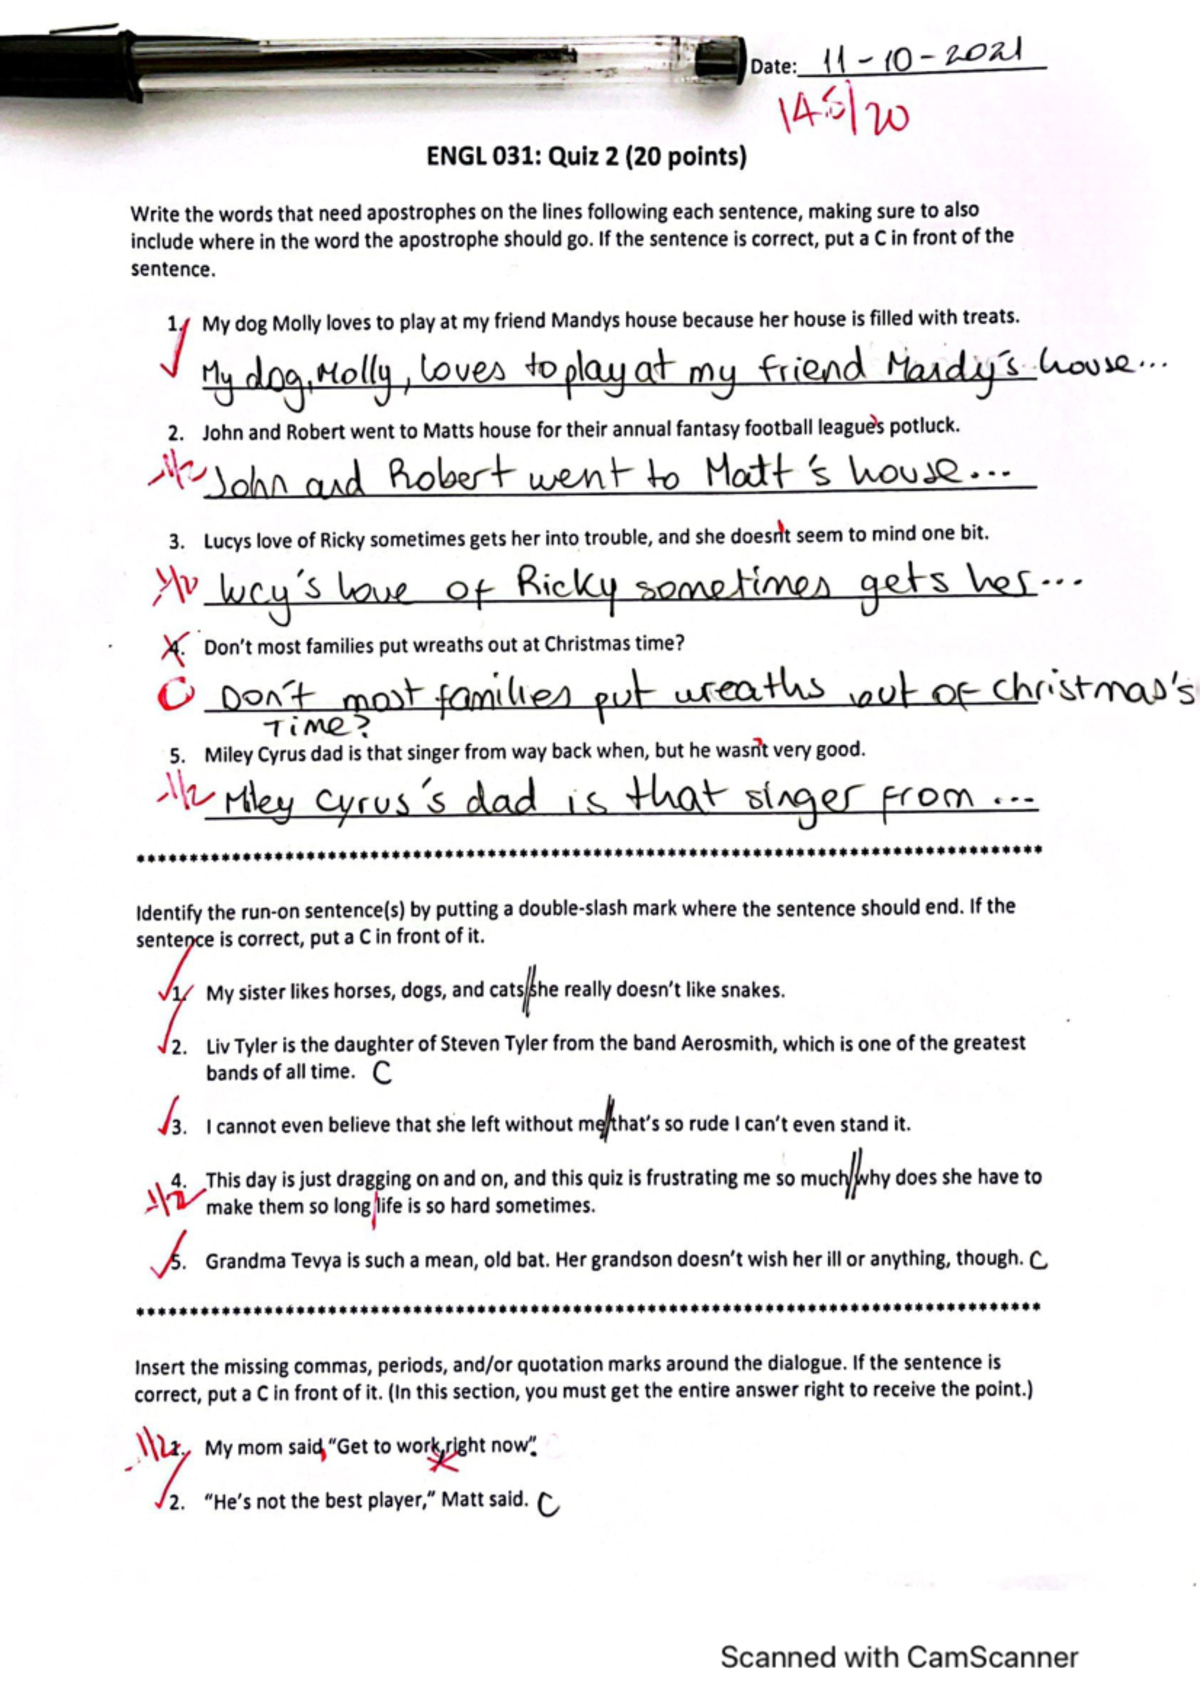 Date: 11-10-2021
14.5/20
ENGL 031: Quiz 2 (20 points)
Write the words that need apostrophes on the lines following each sentence, making sure to also
include where in the word the apostrophe should go. If the sentence is correct, put a C in front of the
sentence.
1. My dog Molly loves to play at my friend Mandys house because her house is filled with treats.
My dog, Molly, loves to play at my friend Mandy's house...
2. John and Robert went to Matts house for their annual fantasy football league's potluck.
-1/2 John and Robert went to Matt's house...
3. Lucys love of Ricky sometimes gets her into trouble, and she doesn't seem to mind one bit.
-1/2 Lucy's love of Ricky sometimes gets her...
4. Don't most families put wreaths out at Christmas time?
C Don't most families put wreaths out of christmas's
Time?
5. Miley Cyrus dad is that singer from way back when, but he wasn't very good.
-1/2 Miley Cyrus's dad is that singer from ...
************************************************************
Identify the run-on sentence(s) by putting a double-slash mark where the sentence should end. If the
sentence is correct, put a C in front of it.
1. My sister likes horses, dogs, and cats//she really doesn't like snakes.
2. Liv Tyler is the daughter of Steven Tyler from the band Aerosmith, which is one of the greatest
bands of all time. C
3. I cannot even believe that she left without me//that's so rude I can't even stand it.
4. This day is just dragging on and on, and this quiz is frustrating me so much//why does she have to
-1/2 make them so long/life is so hard sometimes.
5. Grandma Tevya is such a mean, old bat. Her grandson doesn't wish her ill or anything, though. C
************************************************************
Insert the missing commas, periods, and/or quotation marks around the dialogue. If the sentence is
correct, put a C in front of it. (In this section, you must get the entire answer right to receive the point.)
-1/2 1. My mom said, "Get to work, right now".
2. "He's not the best player," Matt said. C
Scanned with CamScanner